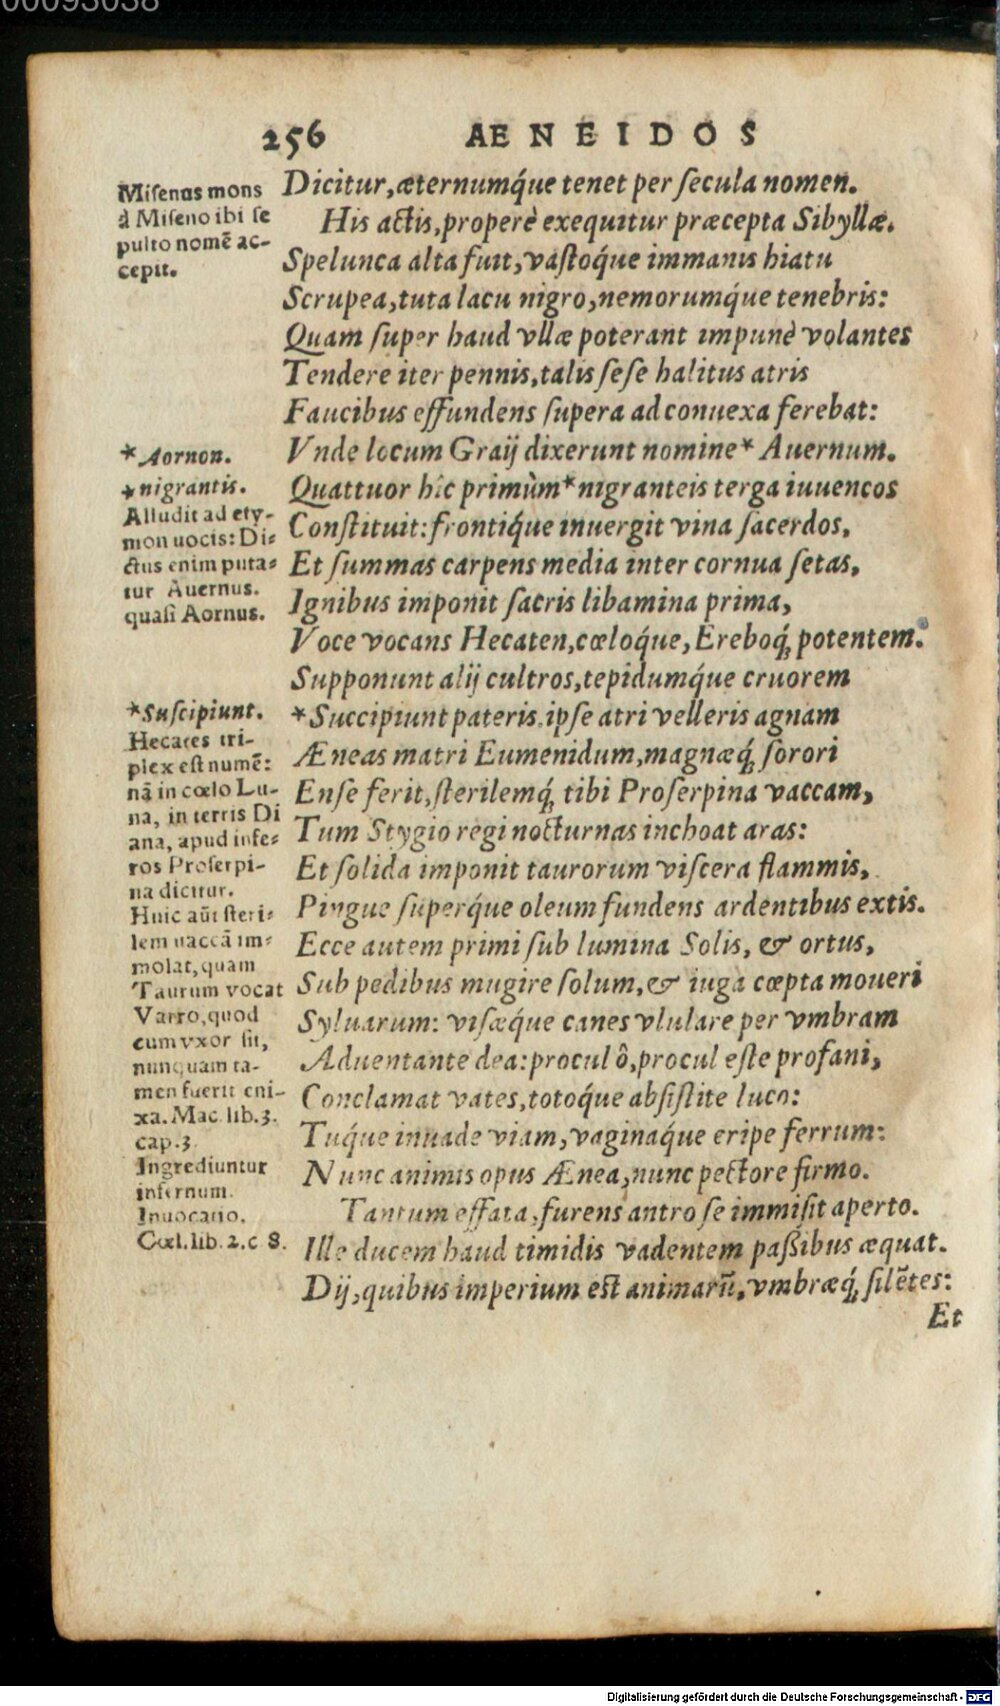 00093038
256 AENEIDOS
Misenus mons
à Miseno ibi se
pulto nomē ac-
cepit.
Dicitur, æternumq́ue tenet per secula nomen.
His actis, properè exequitur præcepta Sibyllæ.
Spelunca alta fuit, vastoq́ue immanis hiatu
Scrupea, tuta lacu nigro, nemorumq́ue tenebris:
Quam super haud vllæ poterant impunè volantes
Tendere iter pennis, talis sese halitus atris
Faucibus effundens supera ad conuexa ferebat:
* Aornon.
Vnde locum Graij dixerunt nomine* Auernum.
* nigrantis.
Alludit ad ety-
mon uocis: Di-
ctus enim puta-
tur Auernus.
quasi Aornus.
Quattuor hic primùm* nigranteis terga iuuencos
Constituit: frontiq́ue inuergit vina sacerdos,
Et summas carpens media inter cornua setas,
Ignibus imponit sacris libamina prima,
Voce vocans Hecaten, cœloq́ue, Ereboq́; potentem.
Supponunt alij cultros, tepidumq́ue cruorem
* Suscipiunt.
Hecates tri-
plex est numē:
nā in cœlo Lu-
na, in terris Di
ana, apud infe-
ros Proserpi-
na dicitur.
Huic aūt steri-
lem uaccā im-
molat, quam
Taurum vocat
Varro, quod
cum vxor sit,
nunquam ta-
men fuerit eni-
xa. Mac. lib. 3.
cap. 3.
Ingrediuntur
infernum.
Inuocatio.
Cœl. lib. 2. c 8.
* Succipiunt pateris. ipse atri velleris agnam
Æneas matri Eumenidum, magnæq́; sorori
Ense ferit, sterilemq́; tibi Proserpina vaccam,
Tum Stygio regi nocturnas inchoat aras:
Et solida imponit taurorum viscera flammis,
Pingue superq́ue oleum fundens ardentibus extis.
Ecce autem primi sub lumina Solis, & ortus,
Sub pedibus mugire solum, & iuga cœpta moueri
Syluarum: visæq́ue canes vlulare per vmbram
Aduentante dea: procul ô, procul este profani,
Conclamat vates, totoq́ue absistite luco:
Tuq́ue inuade viam, vaginaq́ue eripe ferrum:
Nunc animis opus Ænea, nunc pectore firmo.
Tantum effata, furens antro se immisit aperto.
Ille ducem haud timidis vadentem paßibus æquat.
Dij, quibus imperium est animarū, vmbræq́; silētes:
Et
Digitalisierung gefördert durch die Deutsche Forschungsgemeinschaft - DFG